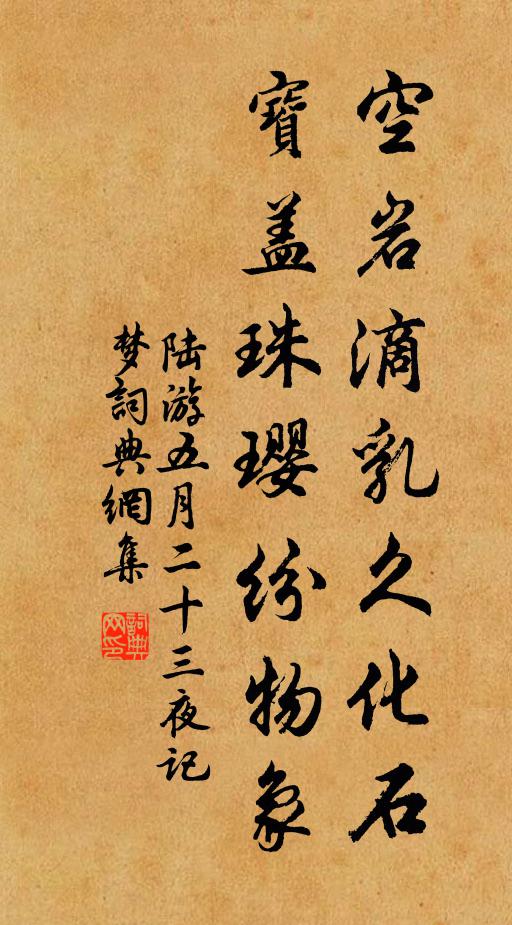 空岩滴乳久化石
寶盖珠璎纷物象
陆游五月二十三夜记
梦詞典網集
詞典网印